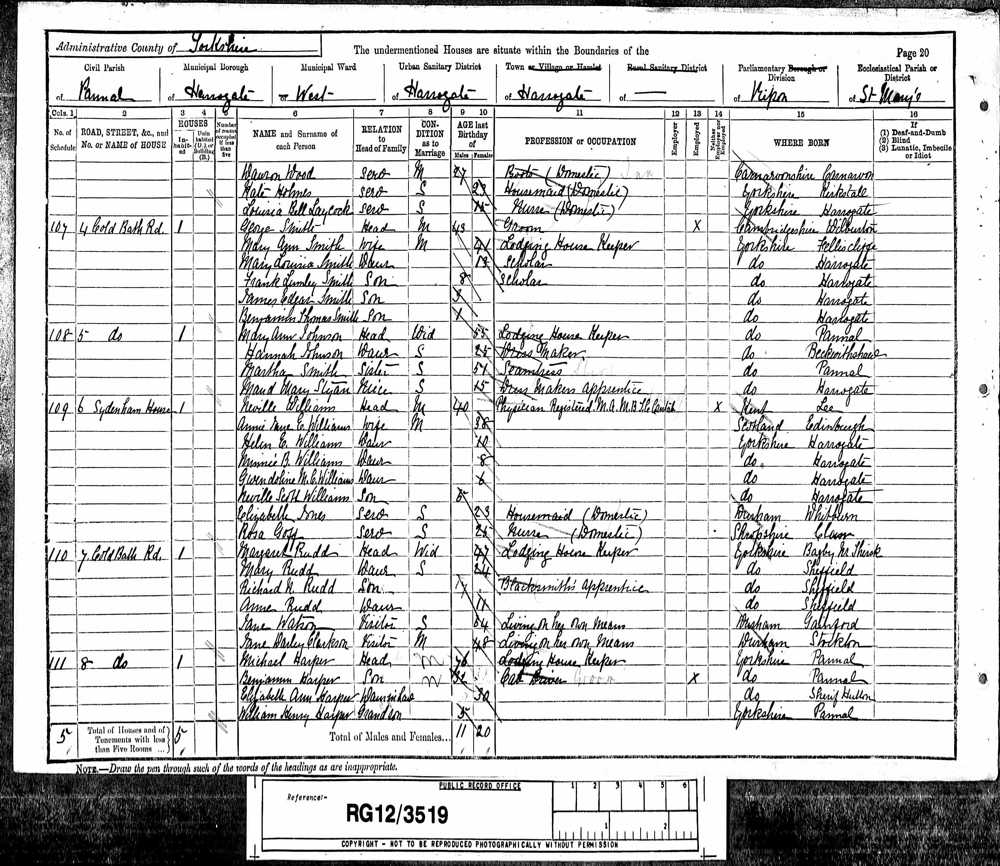 Administrative County of Yorkshire
The undermentioned Houses are situate within the Boundaries of the
Page 20
Civil Parish
Municipal Borough
Municipal Ward
Urban Sanitary District
Town or Village or Hamlet
Rural Sanitary District
Parliamentary Borough or Division
Ecclesiastical Parish or District
of Pannal
of Harrogate
of West
of Harrogate
of Harrogate
of —
of Ripon
of St Mary's
Cols. 1 2 3 4 5 6 7 8 9 10 11 12 13 14 15 16
No. of Schedule
ROAD, STREET, &c., and No. or NAME of HOUSE
HOUSES
Inhabited
Uninhabited (U.) or Building (B.)
Number of rooms occupied if less than five
NAME and Surname of each Person
RELATION to Head of Family
CONDITION as to Marriage
AGE last Birthday of
Males Females
PROFESSION or OCCUPATION
Employer
Employed
Neither Employer nor Employed
WHERE BORN
If
(1) Deaf-and-Dumb
(2) Blind
(3) Lunatic, Imbecile or Idiot
Dawson Wood Serv M 27 Boots (Domestic) Carnarvonshire Carnarvon
Kate Holmes Serv S 23 Housemaid (Domestic) Yorkshire Kirkstall
Louisia Bell Laycock Serv S 15 Nurse (Domestic) Yorkshire Harrogate
107 4 Cold Bath Rd. 1 George Smith Head M 43 Groom X Cambridgeshire Wilburton
Mary Ann Smith Wife M 41 Lodging House Keeper Yorkshire Felliscliffe
Mary Louisia Smith Daur Scholar do Harrogate
Frank Lumley Smith Son 8 Scholar do Harrogate
James Edgar Smith Son do Harrogate
Benjamin Thomas Smith Son do Harrogate
108 5 do 1 Mary Ann Johnson Head Wid 55 Lodging House Keeper do Pannal
Hannah Johnson Daur S 25 Dress Maker do Beckwithshaw
Martha Smith Sister S 51 Seamtress do Pannal
Maud Mary Niece S 15 Dress Makers Apprentice do Harrogate
109 6 Sydenham House 1 Neville Williams Head M 40 Physician Registered M.A. M.B. X Kent Lee
Annie Jane C. Williams Wife M 38 Scotland Edinburgh
Helen E. Williams Daur 10 Yorkshire Harrogate
Minnie B. Williams Daur 8 do Harrogate
Gwendoline M. C. Williams Daur 6 do Harrogate
Neville Scott Williams Son do Harrogate
Elizabeth Jones Serv S 23 Housemaid (Domestic) Durham Whitburn
Rosa Goff Serv S 25 Nurse (Domestic) Shropshire Clun
110 7 Cold Bath Rd. 1 Margaret Rudd Head Wid 47 Lodging House Keeper Yorkshire Bagby Nr Thirsk
Mary Rudd Daur S 24 do Sheffield
Richard Rudd Son Blacksmith's Apprentice do Sheffield
Anne Rudd Daur 11 do Sheffield
Jane Watson Visitor S 64 Living on her own Means Durham Gainford
Jane Darley Clarkson Visitor M 48 Living on her own Means Durham Stockton
111 8 do 1 Michael Harper Head M 76 Lodging House Keeper Yorkshire Pannal
Benjamin Harper Son M 32 Cab Driver Groom X do Pannal
Elizabeth Ann Harper Daur in law 30 do Sherif Hutton
William Henry Harper Grandson 5 Yorkshire Pannal
5 Total of Houses and of Tenements with less than Five Rooms ... 5 Total of Males and Females... 11 20
NOTE.—Draw the pen through such of the words of the headings as are inappropriate.
PUBLIC RECORD OFFICE
Reference:-
RG12/3519
1 2 3 4 5 6
1 2
COPYRIGHT - NOT TO BE REPRODUCED PHOTOGRAPHICALLY WITHOUT PERMISSION